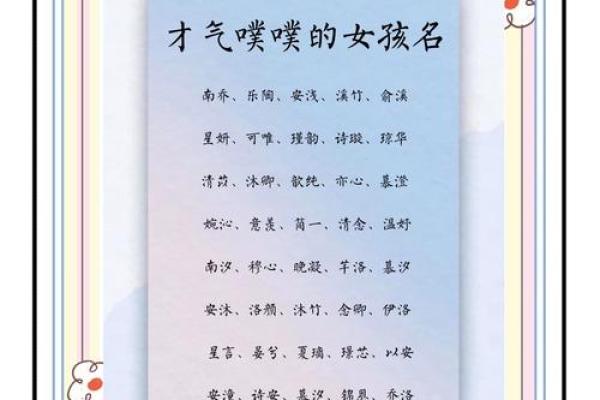 才气噗噗的女孩名
南乔、乐陶、安浅、溪竹、俞溪
星妍、可唯、瑾韵、诗璇、琼华
清苡、沐卿、歆纯、亦心、慕澄
婉沁、意羡、简一、清念、温妤
南汐、穆心、晚凝、芊洛、慕汐
安沐、洛颜、沐竹、念卿、伊洛
星言、晏兮、夏璃、璟芯、以安
安潼、诗安、慕汐、锦恩、乔洛